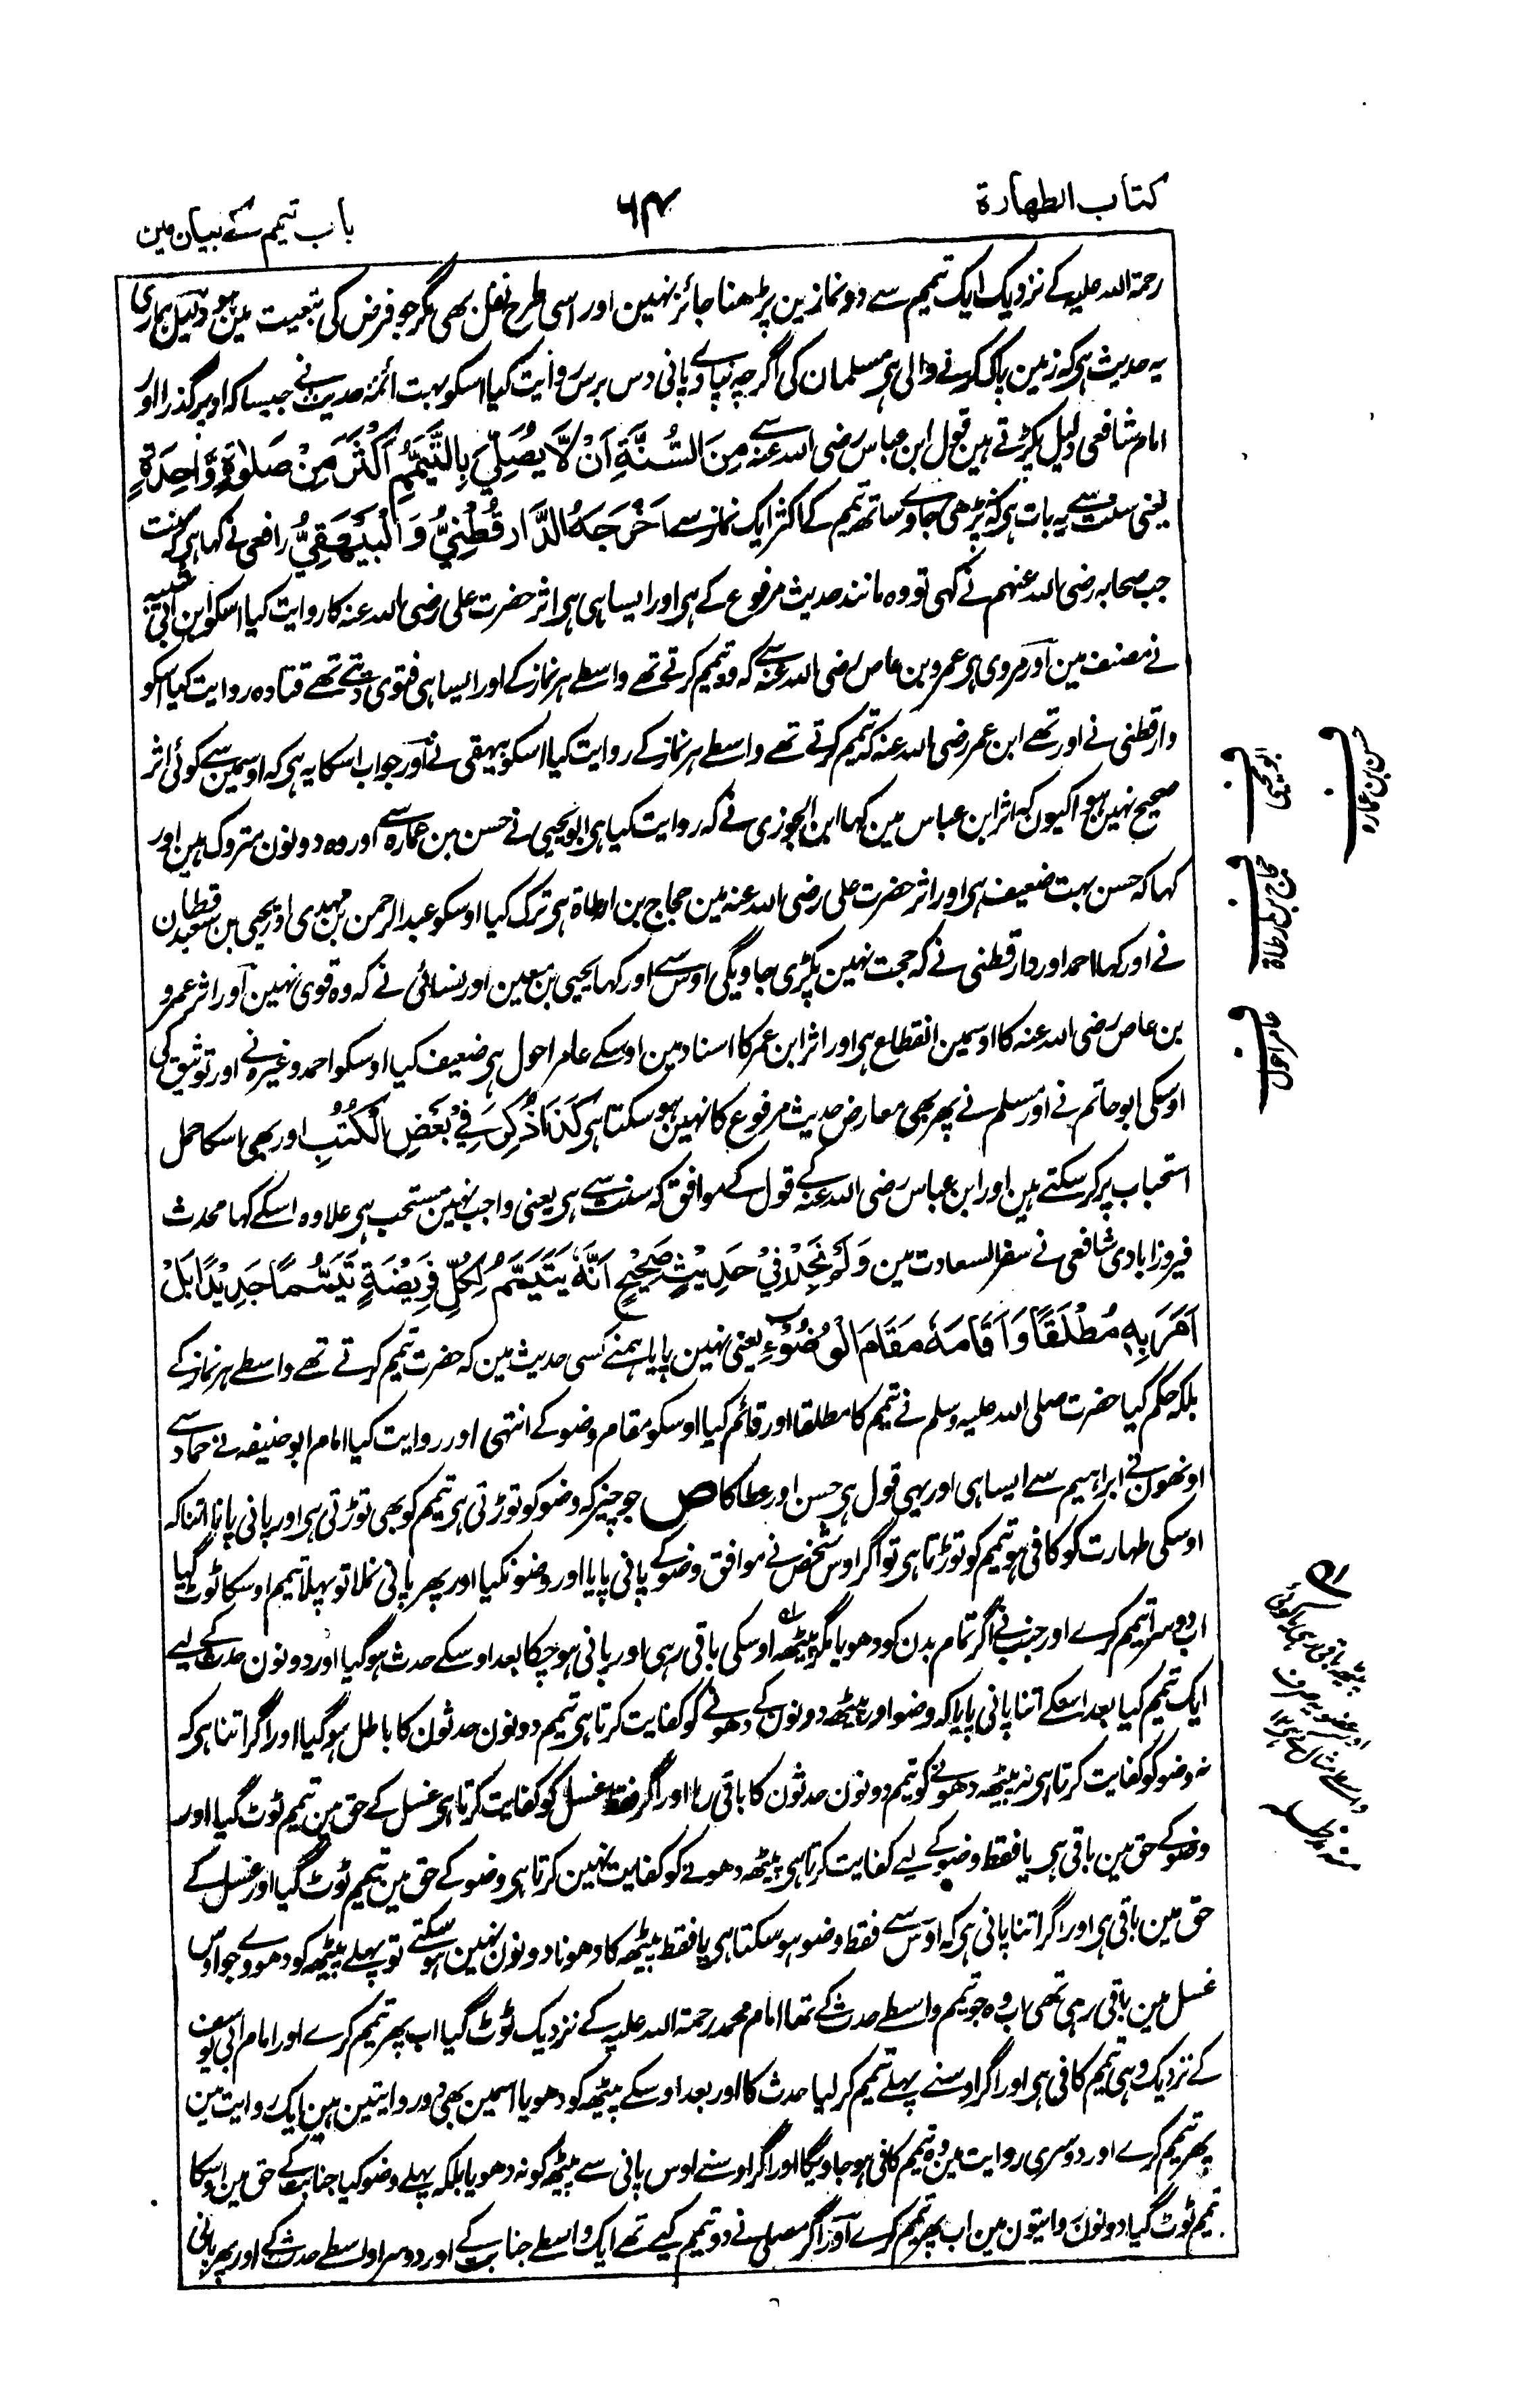 کتاب الطهارة
۶۴
باب تیمم کے بیان مین
رحمۃ اللہ علیہ کے نزدیک ایک تیمم سے دو نمازین پڑھنا جائز نہین اور اسی طرح نفل بھی مگر جو فرض کی تبعیت مین ہو دلیل ہماری
یہ حدیث ہی کہ زمین پاک کرنے والی ہی مسلمان کی اگرچہ نپاوے پانی دس برس روایت کیا اسکو بہت ائمہ حدیث نے جیسا کہ اوپر گذرا اور
امام شافعی دلیل پکڑتے ہین قول ابن عباس رضی اللہ عنہ سے مِنَ السُّنَّةِ اَنْ لَّا یُصَلِّیَ بِالتَّیَمُّمِ اَکْثَرَ مِنْ صَلٰوةٍ وَّاحِدَةٍ
یعنی سنت سے یہ بات ہی کہ نہ پڑھی جاوے ساتھ تیمم کے اکثر ایک نماز سے اَخْرَجَهُ الدَّارَقُطْنِیُّ وَالْبَیْهَقِیُّ رافعی نے کہا ہی کہ سنت
جب صحابہ رضی اللہ عنہم نے کہی تو وہ مانند حدیث مرفوع کے ہی اور ایسا ہی ہی اثر حضرت علی رضی اللہ عنہ کا روایت کیا اسکو ابن ابی شیبہ
نے مصنف مین اور مروی ہی عمرو بن عاص رضی اللہ عنہ سے کہ وہ تیمم کرتے تھے واسطے ہر نماز کے اور ایسا ہی فتوی دیتے تھے قتادہ روایت کیا اسکو
دارقطنی نے اور تھے ابن عمر رضی اللہ عنہ کہ تیمم کرتے تھے واسطے ہر نماز کے روایت کیا اسکو بیہقی نے اور جواب اسکا یہ ہی کہ اوسمین سے کوئی اثر
صحیح نہین ہوا کیون کہ اثر ابن عباس مین کہا ابن الجوزی نے کہ روایت کیا ہی ابو یحیی نے حسن بن عمارہ سے اور وہ دونون متروک ہین اور
کہا کہ حسن بہت ضعیف ہی اور اثر حضرت علی رضی اللہ عنہ مین حجاج بن ارطاة ہی ترک کیا اوسکو عبد الرحمن بن مہدی اور یحیی بن سعید ن قطان
نے اور کہا احمد اور دارقطنی نے کہ حجت نہین پکڑی جاویگی اوس سے اور کہا یحیی بن معین اور نسائی نے کہ وہ قوی نہین اور اثر عمرو
بن عاص رضی اللہ عنہ کا اوسمین انقطاع ہی اور اثر ابن عمر کا اسناد مین اوسکے عامر احول ہی ضعیف کیا اوسکو احمد وغیرہ نے اور توثیق کی
اوسکی ابو حاتم نے اور مسلم نے پھر بھی معارض حدیث مرفوع کا نہین ہو سکتا ہی کَذَا ذُکِرَ فِیْ بَعْضِ الْکُتُبِ اور بھی اسکا حمل
استحباب پر کر سکتے ہین اور ابن عباس رضی اللہ عنہ کے قول کے موافق کہ سنت سے ہی یعنی واجب نہین مستحب ہی علاوہ اسکے کہا محدث
فیروزابادی شافعی نے سفر السعادت مین وَلَمْ نَجِدْ فِیْ حَدِیْثٍ صَحِیْحٍ اَنَّهٗ یَتَیَمَّمُ لِکُلِّ فَرِیْضَةٍ تَیَمُّمًا جَدِیْدًا بَلْ
اَمَرَ بِهٖ مُطْلَقًا وَاَقَامَهٗ مَقَامَ الْوُضُوْءِ یعنی نہین پایا ہمنے کسی حدیث مین کہ حضرت تیمم کرتے تھے واسطے ہر نماز کے
بلکہ حکم کیا حضرت صلی اللہ علیہ وسلم نے تیمم کا مطلقا اور قائم کیا اوسکو مقام وضو کے انتہی اور روایت کیا امام ابو حنیفہ نے حماد سے
اونھون نے ابراہیم سے ایسا ہی اور یہی قول ہی حسن اور عطا کا ص جو چیز کہ وضو کو توڑتی ہی تیمم کو بھی توڑتی ہی اور پانی پانا اتنا کہ
اوسکی طہارت کو کافی ہو تیمم کو توڑتا ہی تو اگر اوس شخص نے موافق وضو کے پانی پایا اور وضو نکیا اور پھر پانی نملا تو پہلا تیمم اوسکا ٹوٹ گیا
اب دوسرا تیمم کرے اور جنب نے اگر تمام بدن کو دھویا مگر پیٹھ اوسکی باقی رہی اور پانی ہو چکا بعد اوسکے حدث ہو گیا اور دونون حدث کے لیے
ایک تیمم کیا بعد اسکے اتنا پانی پایا کہ وضو اور پیٹھ دونون کے دھونے کو کفایت کرتا ہی تیمم دونون حدثون کا باطل ہو گیا اور اگر اتنا ہی کہ
نہ وضو کو کفایت کرتا ہی نہ پیٹھ دھونے کو تیمم دونون حدثون کا باقی رہا اور اگر فقط غسل کو کفایت کرتا ہی غسل کے حق مین تیمم ٹوٹ گیا اور
وضو کے حق مین باقی ہی یا فقط وضو کے لیے کفایت کرتا ہی پیٹھ دھونے کو کفایت نہین کرتا ہی وضو کے حق مین تیمم ٹوٹ گیا اور غسل کے
حق مین باقی ہی اور اگر اتنا پانی ہی کہ اوس سے فقط وضو ہو سکتا ہی یا فقط پیٹھ کا دھونا دونون نہین ہو سکتے تو پہلے پیٹھ کو دھووے جو اوس
غسل مین باقی رہی تھی اب وہ جو تیمم واسطے حدث کے تھا امام محمد رحمۃ اللہ علیہ کے نزدیک ٹوٹ گیا اب پھر تیمم کرے اور امام ابی یوسف
کے نزدیک وہی تیمم کافی ہی اور اگر اوسنے پہلے تیمم کر لیا حدث کا اور بعد اوسکے پیٹھ کو دھویا اسمین بھی دو روایتین ہین ایک روایت مین
پھر تیمم کرے اور دوسری روایت مین وہ تیمم کافی ہو جاویگا اور اگر اوسنے اوس پانی سے پیٹھ کو نہ دھویا بلکہ پہلے وضو کیا جنابت کے حق مین اوسکا
تیمم ٹوٹ گیا دونون روایتون مین اب پھر تیمم کرے اور اگر مصلی نے دو تیمم کیے تھے ایک واسطے جنابت کے اور دوسرا واسطے حدث کے اور پھر پانی
حسن بن عمارہ
ابو یحیی
حجاج بن ارطاة
عامر احول
پیٹھ باقی رہی یا کوئی
اور عضو یہ صرف
واسطے مثال کے ہی ۱۲
منہ